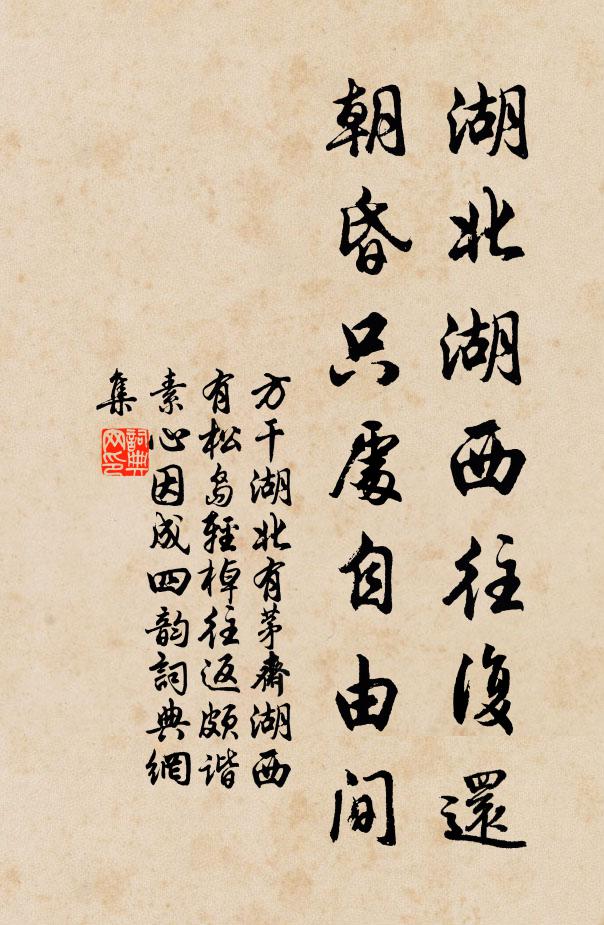 湖北湖西往復還
朝昏只處自由間
方干湖北有茅齋湖西
有松島輕棹往返頗諧
素心因成四韵詞典網
集
詞典
网印